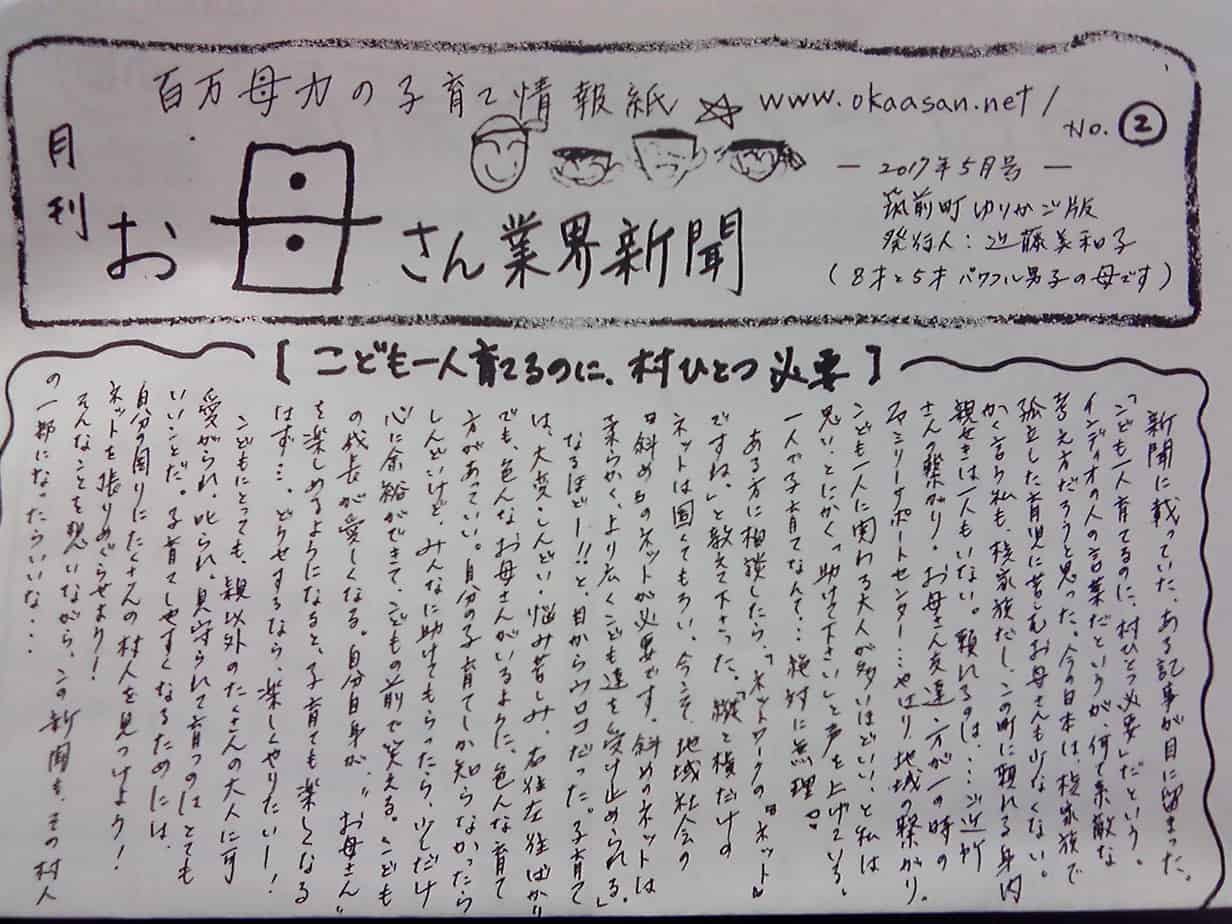 百万母力の子育て情報紙 ☆ www.okaasan.net/
No. ②
月刊
お母さん業界新聞
― 2017年5月号 ―
筑前町ゆりかご版
発行人：近藤美和子
(8才と5才パワフル男子の母です)
【こども一人育てるのに、村ひとつ必要】
新聞に載っていた、ある記事が目に留まった。
「こども一人育てるのに、村ひとつ必要」だという。
インディオの人の言葉だというが、何て素敵な
考え方だろうと思った。今の日本は、核家族で
孤立した育児に苦しむお母さんも少なくない。
かく言う私も、核家族だし、この町に頼れる身内
親せきは一人もいない。頼れるのは、…ご近所
さんの繋がり。お母さん友達、万が一の時の
ファミリーサポートセンター…やはり地域の繋がり。
こども一人に関わる大人が多いほどいい、と私は
思い、とにかく「助けて下さい」と声を上げている。
一人で子育てなんて…絶対に無理。
ある方に相談したら、「ネットワークの『ネット』
ですね。」と教えて下さった。「縦と横だけの
ネットは固くてもろい、今こそ、地域社会の
『斜め』のネットが必要です。斜めのネットは
柔らかく、より広くこども達を受け止められる。」
なるほどー!!と、目からウロコだった。子育て
は、大変・しんどい・悩み苦しみ、右往左往ばかり
でも、色んなお母さんがいるように、色んな育て
方があっていい。自分の子育てしか知らなかったら
しんどいけど、みんなに助けてもらったら、少しだけ
心に余裕ができて、こどもの前で笑える。こども
の成長が愛しくなる。自分自身が、"お母さん"
を楽しめるようになると、子育ても楽しくなる
はず…。どうせするなら、楽しくやりたいー！
こどもにとっても、親以外のたくさんの大人に可
愛がられ、叱られ、見守られて育つのはとても
いいことだ。子育てしやすくなるためには、
自分の周りにたくさんの村人を見つけよう！
ネットを張りめぐらせよう！
そんなことを思いながら、この新聞も、その村人
の一部になったらいいな…